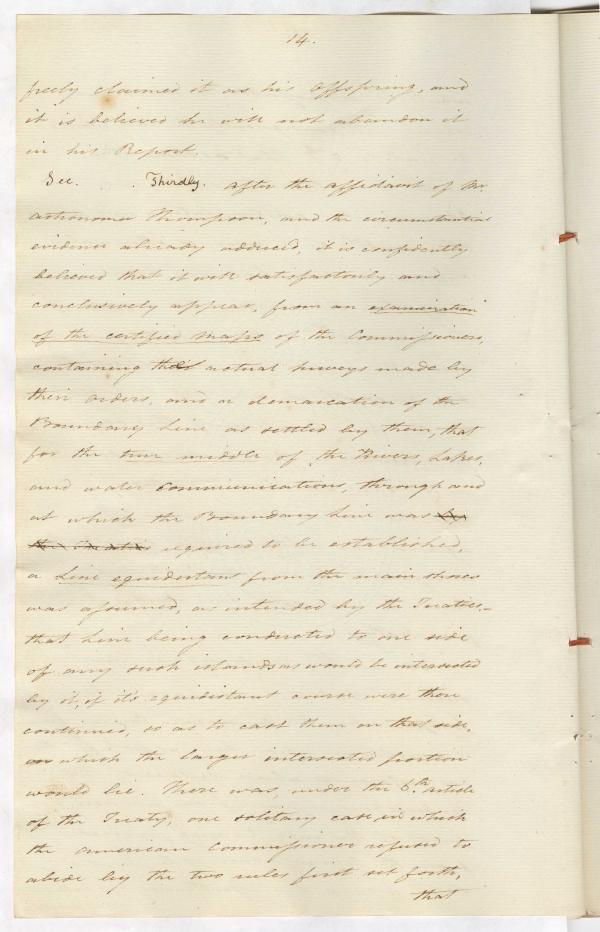 14.
freely claimed it as his offspring, and
it is believed he will not abandon it
in his Report.
Sec. . Thirdly. After the affidavit of Mr.
Astronomer Thompson, and the circumstantial
evidence already adduced, it is confidently
believed that it will satisfactorily and
conclusively appear, from an examination
of the certified maps of the Commissioners,
containing the actual surveys made by
their orders, and a demarcation of the
Boundary Line as settled by them, that
for the true middle of the Rivers, Lakes,
and water communications, through and
at which the Boundary Line was by
the Treaties required to be established,
a Line equidistant from the main shores
was assumed, as intended by the Treaties—
that Line being conducted to one side
of any such islands as would be intersected
by it, if it's equidistant course were then
continued, so as to cast them on that side,
on which the larger intersected portion
would lie. There was, under the 6th. article
of the Treaty, one solitary case in which
the American Commissioner refused to
abide by the two rules first set forth,
that